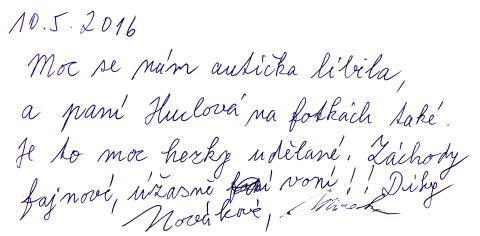 10.5.2016
Moc se nám autíčka líbila,
a paní Huclová na fotkách také.
Je to moc hezky udělané. Záchody
fajnové, úžasně voní!! Díky
Novákové,